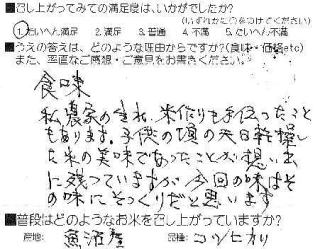 ■召し上がってみての満足度は、いかがでしたか?
(いずれかに○をつけてください)
1.たいへん満足 2.満足 3.普通 4.不満 5.たいへん不満
■うえの答えは、どのような理由からですか?(食味・価格etc)
また、率直なご感想・ご意見をお書きください。
食味
私農家の生れ、米作りも手伝ったこと
もあります。子供の頃の天日乾燥し
た米の美味であったことが想い出
に残っていますが今回の味はそ
の味にそっくりだと思います
■普段はどのようなお米を召し上がっていますか?
産地: 魚沼産 品種: コシヒカリ